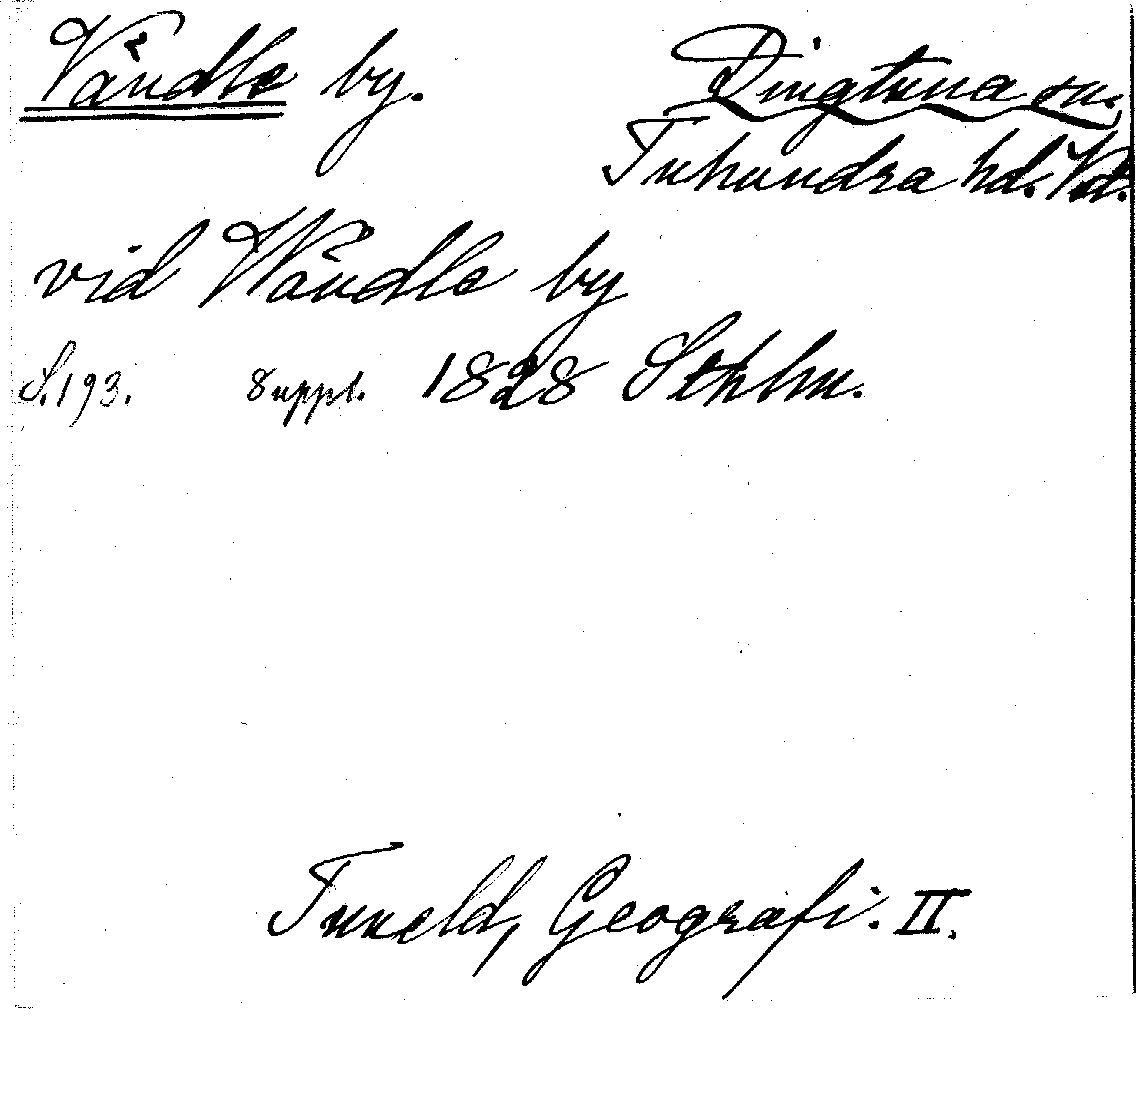 Vändle by. Dingtuna sn.
Tuhundra hd. Vstm.
vid Wändle by
S. 193. Suppl. 1828 Sthlm.
Tuneld, Geografi. II.